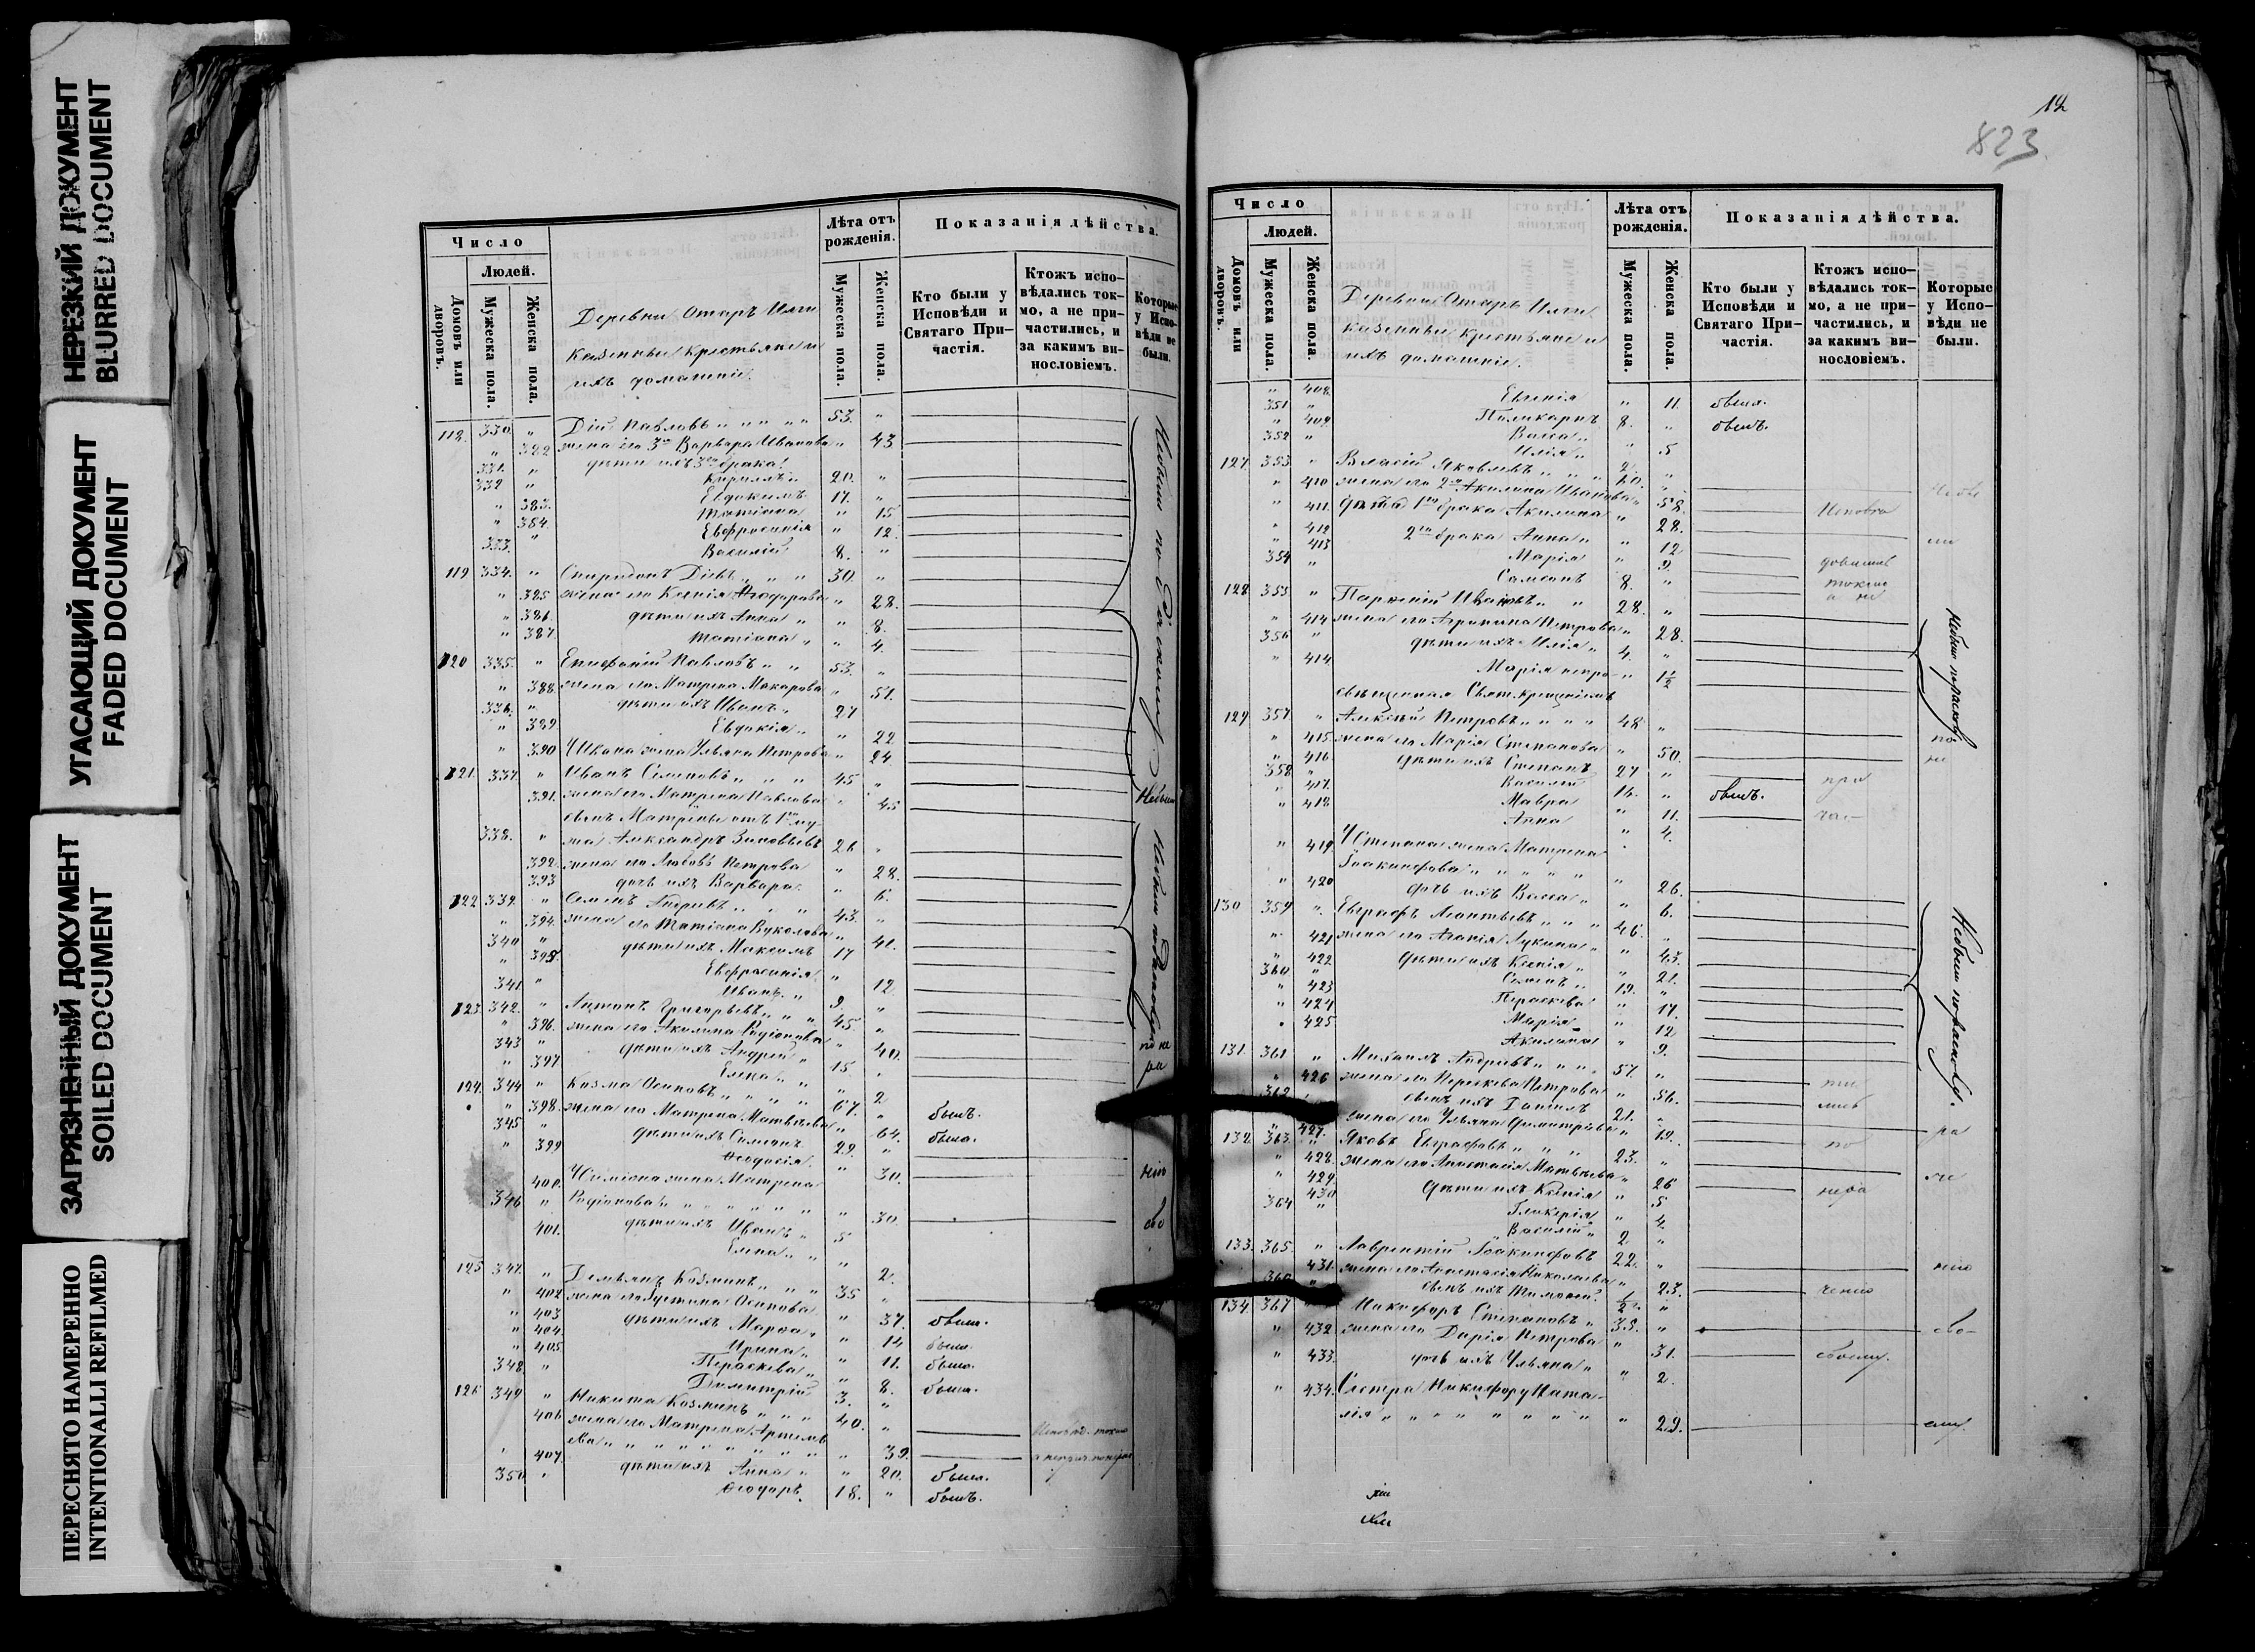 НЕРЕЗКИЙ ДОКУМЕНТ
BLURRED DOCUMENT
УГАСАЮЩИЙ ДОКУМЕНТ
FADED DOCUMENT
ЗАГРЯЗНЕННЫЙ ДОКУМЕНТ
SOILED DOCUMENT
ПЕРЕСНЯТО НАМЕРЕННО
INTENTIONALLI REFILMED
Число
Людей.
Домовъ или дворовъ.
Мужеска пола.
Женска пола.
Деревни Отаръ
казенные крестьяне и
ихъ домашніе.
Лѣта отъ рожденія.
Мужеска пола.
Женска пола.
Показанія дѣйства.
Кто были у Исповѣди и Святаго Причастія.
Ктожъ исповѣдались токмо, а не причастились, и за какимъ винословіемъ.
Которые у Исповѣди не были.
118. 330. " Дій Павловъ " " " " 53. "
" 382 жена его 3я Варвара Иванова " 43
дѣти ихъ 3го брака
331. " Кириллъ " 20. "
332 " Евдокимъ 17. "
" 383. Татіана " 15
" 384. Евфросинія " 12.
333. " Василій 8. "
119 334. " Спиридонъ Діевъ " " " 30. "
" 385 жена его Ксенія Ѳеодорова " 28.
" 386. дѣти ихъ Анна " " 8.
" 387. Татіана " " 4.
120 335. " Епифаній Павловъ " " 53. "
" 388. жена его Матрена Макарова " 51.
336. " дѣти ихъ Иванъ " 27
" 389. Евдокія " " 22
" 390 У Ивана жена Ульяна Петрова " 24
121. 337. " Иванъ Семеновъ " " " 45 "
391. жена его Матрена Павлова " 45
сынъ Матрены отъ 1го му-
338. " жа Александръ Зиновьевъ 26 "
392. жена его Любовь Петрова " 28.
393 дочь ихъ Варвара " 6.
122 339. " Семенъ Андреевъ " " " 43. "
" 394. жена его Татіана Вуколова " 41.
340 " дѣти ихъ Максимъ 17
" 395. Евфросинія " 12
341 " Иванъ " 9 "
123. 342. " Антонъ Григорьевъ " " " 45. "
" 396. жена его Акилина Родіонова " 40.
343 " дѣти ихъ Андрей " 15. "
" 397 Елена " " " 2
124. 344 " Козма Осиповъ " " " " 67. " былъ.
" 398. жена его Матрена Матвѣева " 64. была.
345 " дѣти ихъ Симеонъ 29. "
" 399 Ѳеодосія " 30.
400. У Симеона жена Матрена
Родіонова " " " " " " " 30.
346 " дѣти ихъ Иванъ " 5
401. Елена " " " 2.
125 347. " Демьянъ Козминъ " " " 35 "
" 402 жена его Устинья Осипова " 37. была.
" 403 дѣти ихъ Марѳа " " 14 была.
" 404. Ирина " " 11. была.
" 405. Параскева " " 8. была.
348. " Димитрій 3. "
126 349 " Никита Козминъ " " " 40. "
406 жена его Матрена Артемь-
ева " " " " " " " " " 39.
407. дѣти ихъ Анна " " 20. была.
350 " Ѳеодоръ 18. " былъ.
Небыли по Расколу
Небыли
12
823.
Число
Людей.
Домовъ или дворовъ.
Мужеска пола.
Женска пола.
Деревни Отаръ
казенные крестьяне и
ихъ домашніе.
Лѣта отъ рожденія.
Мужеска пола.
Женска пола.
Показанія дѣйства.
Кто были у Исповѣди и Святаго Причастія.
Ктожъ исповѣдались токмо, а не причастились, и за какимъ винословіемъ.
Которые у Исповѣди не были.
" 408. Евгенія " 11. была.
351 " Поликарпъ 8. " былъ.
" 409 Васса " " 5
352 " Илія " 2. "
127 353. " Власій Яковлевъ " " " 60. "
" 410 жена его 2я Акилина Иванова " 58.
" 411. дѣти 1го брака Акилина " 28.
" 412 2го брака Анна " " 12
" 413 Марія " 9.
354 " Самсонъ 8. "
128 355. " Парѳеній Ивановъ " " 28. "
" 414 жена его Агрипина Петрова " 28.
356 " дѣти ихъ Илія " 4. "
" 414 Марія непро- " 1/2
свѣщенная Свят. крещеніемъ
129 357. " Алексѣй Петровъ " " " " 48. "
" 415 жена его Марія Степанова " 50.
" 416 дѣти ихъ Степанъ 27 "
358 " Василій 14. " былъ.
" 417. Мавра " 11.
" 418 Анна " 4.
" 419. У Степана жена Матрена
Іоакинфова " " " " " 26.
" 420 дочь ихъ Васса " " 6.
130 359 " Евграфъ Леонтьевъ " " " 46. "
" 421 жена его Агапія Лукина " 43.
" 422 дѣти ихъ Ксенія " " 21.
360 " Семенъ " 19. "
" 423 Параскева " 17.
" 424 Марія " 12
" 425. Акилина " 9.
131. 361 " Михаилъ Андреевъ " " " " 57. "
" 426 жена его Параскева Петрова " 56.
362 " сынъ ихъ Даніилъ 21. "
" 427. жена его Ульяна Димитріева " 19.
132. 363. " Яковъ Евграфовъ " " " 23. "
" 428. жена его Анастасія Матвѣева " 26
" 429. дѣти ихъ Ксенія " 5
430 Гликерія " 4.
364 " Василій " 2 "
133. 365. " Лаврентій Іоакинфовъ 22. "
431. жена его Анастасія Николаева " 23.
366 " сынъ ихъ Тимоѳей 1/2. "
134. 367 Никифоръ Степановъ " 35. "
" 432 жена его Дарія Петрова " 31.
" 433. дочь ихъ Ульяна " " 2.
" 434. Сестра Никифору Ната-
лія " " " " " " " " " 29.
Небыли по расколу
Небыли по расколу.